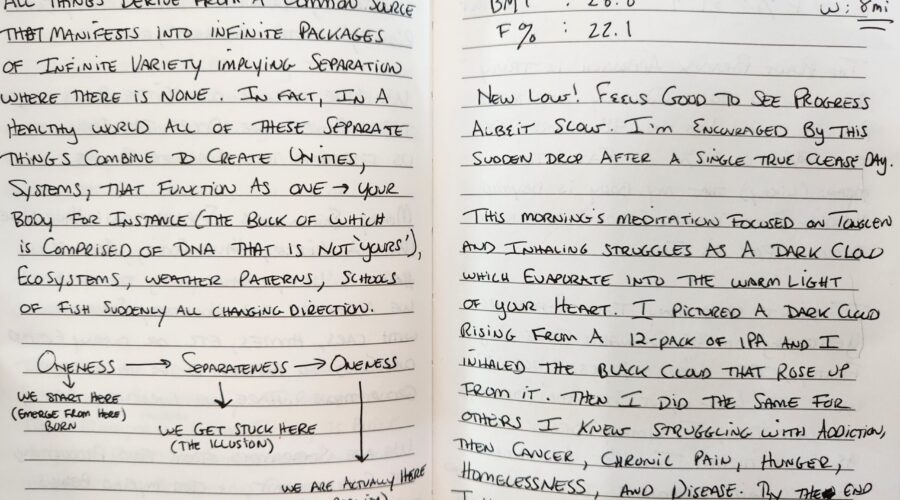 ALL THINGS DERIVE FROM A COMMON SOURCE
THAT MANIFESTS INTO INFINITE PACKAGES
OF INFINITE VARIETY IMPLYING SEPARATION
WHERE THERE IS NONE. IN FACT, IN A
HEALTHY WORLD ALL OF THESE SEPARATE
THINGS COMBINE TO CREATE UNITIES,
SYSTEMS, THAT FUNCTION AS ONE → YOUR
BODY FOR INSTANCE (THE BULK OF WHICH
IS COMPRISED OF DNA THAT IS NOT 'YOURS'),
ECOSYSTEMS, WEATHER PATTERNS, SCHOOLS
OF FISH SUDDENLY ALL CHANGING DIRECTION.
ONENESS → SEPARATENESS → ONENESS
WE START HERE
(EMERGE FROM HERE)
BORN
WE GET STUCK HERE
(THE ILLUSION)
WE ARE ACTUALLY HERE
BMI : 26.6
W: 8mi
F% : 22.1
NEW LOW! FEELS GOOD TO SEE PROGRESS
ALBEIT SLOW. I'M ENCOURAGED BY THIS
SUDDEN DROP AFTER A SINGLE TRUE CLEASE DAY.
THIS MORNING'S MEDITATION FOCUSED ON TONGLEN
AND INHALING STRUGGLES AS A DARK CLOUD
WHICH EVAPORATE INTO THE WARM LIGHT
OF YOUR HEART. I PICTURED A DARK CLOUD
RISING FROM A 12-PACK OF IPA AND I
INHALED THE BLACK CLOUD THAT ROSE UP
FROM IT. THEN I DID THE SAME FOR
OTHERS I KNEW STRUGGLING WITH ADDICTION,
THEN CANCER, CHRONIC PAIN, HUNGER,
HOMELESSNESS, AND DISEASE. BY THE END